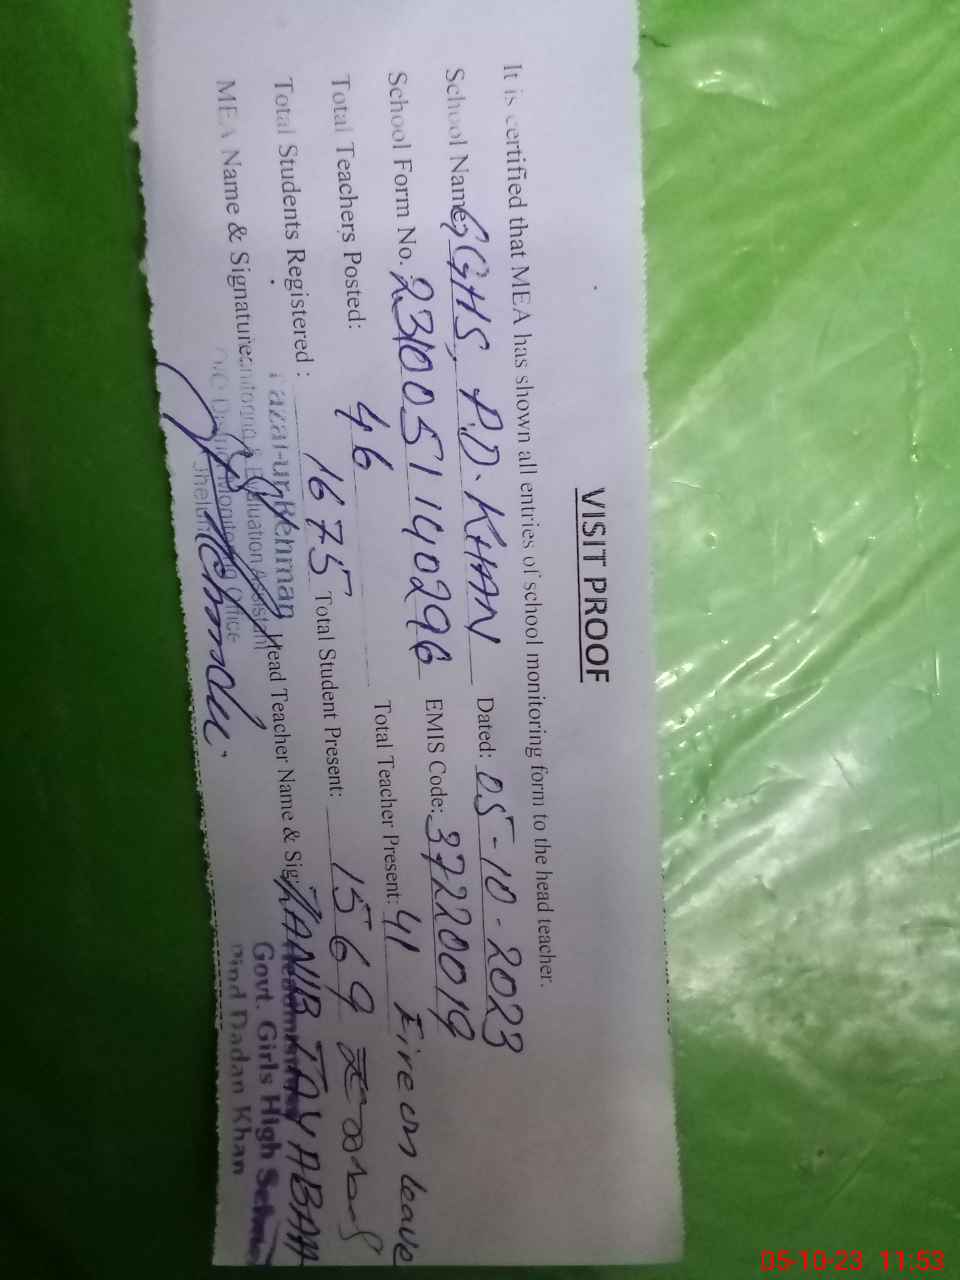 VISIT PROOF
It is certified that MEA has shown all entries of school monitoring form to the head teacher.
School Name: GGHS, P.D. KHAN Dated: 05-10-2023
School Form No. 2310051140296 EMIS Code: 37220019
Total Teachers Posted: 46 Total Teacher Present: 41 Five on leave
Total Students Registered : 1675 Total Student Present: 1569
MEA Name & Signature: Head Teacher Name & Sig: TAYABAH
Fazal-ur-Rehman
Monitoring & Evaluation Assistant
District Monitoring Office
Jhelum
Headmistress
Govt. Girls High School
Pind Dadan Khan
05-10-23 11:53